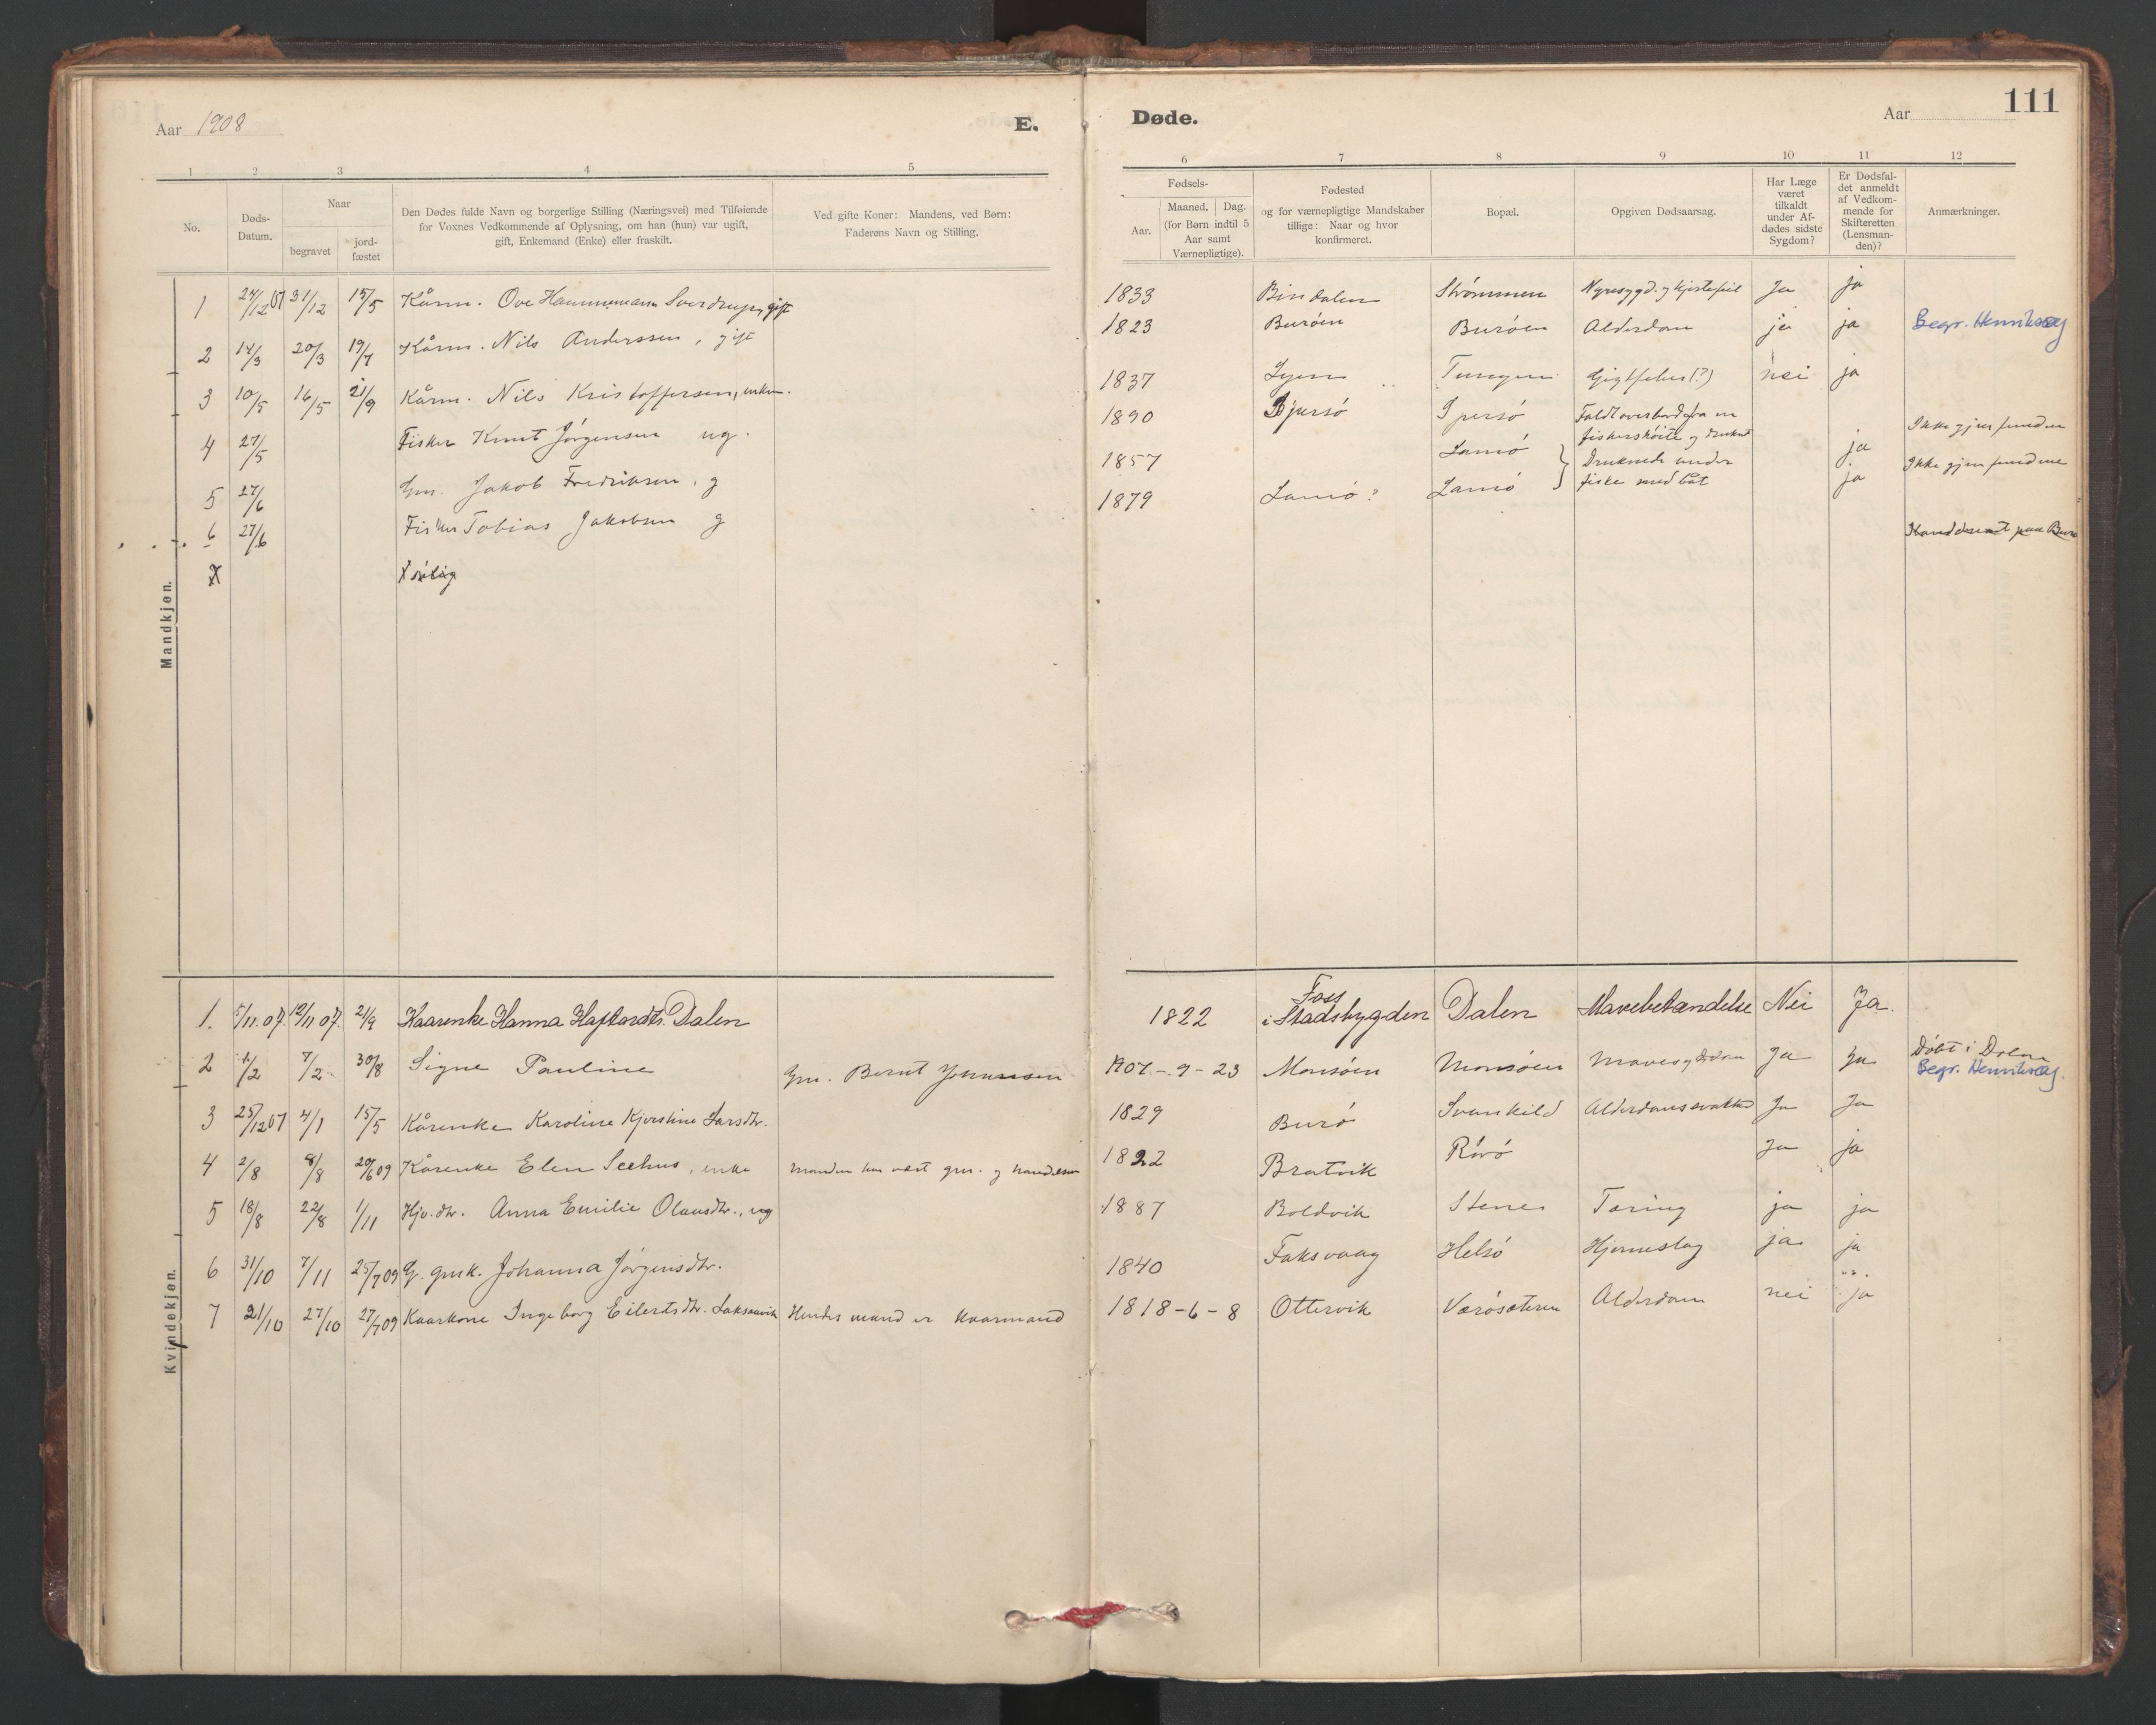 Aar 1908
E.
1 2 3 4 5
No.
Døds-
Datum.
Naar
begravet
jord-
fæstet
Den Dødes fulde Navn og borgerlige Stilling (Næringsvei) med Tilføiende
for Voxnes Vedkommende af Oplysning, om han (hun) var ugift,
gift, Enkemand (Enke) eller fraskilt.
Ved gifte Koner: Mandens, ved Børn:
Faderens Navn og Stilling.
Mandkjøn.
1 24/12 07 31/12 15/5 Kårm. Ove Hammemann Sverdrup, gift
2 14/3 20/3 19/7 Kårm. Nils Anderssen, gift
3 10/5 16/5 21/9 Kårm. Nils Kristoffersen, enkem.
4 27/5 Fisker Knut Jörgensen ug.
5 27/6 Gm. Jakob Fredriksen, g
6 27/6 Fisker Tobias Jakobsen g
Kvindekjøn.
1. 5/11.07. 12/11 07. 21/9 Kaarenke Hanna Haftordts. Dalen
2 1/2 7/2 30/8 Signe Pauline Gm. Bernt Johansen
3 25/12 07 4/1 15/5 Kårenke Karoline Kjerstine Larsdtr.
4 2/8 8/8 20/6 09 Kårenke Elen Seehus, enke Manden har vært gm. og handelsm
5 18/8 22/8 1/11 Hjv. dtr. Anna Emilie Olausdtr., ug
6 31/10 7/11 25/7 09 G. gmk. Johanna Jörgensdtr.
7 21/10 27/10 27/7 09 Kaarkone Ingeborg Eilertsdtr. Laksaavik Hendes mand er kaarmand
Døde.
Aar
111
6 7 8 9 10 11 12
Fødsels-
Aar.
Maaned. Dag.
(for Børn indtil 5
Aar samt
Værnepligtige).
Fødested
og for værnepligtige Mandskaber
tillige: Naar og hvor
konfirmeret.
Bopæl.
Opgiven Dødsaarsag.
Har Læge
været
tilkaldt
under Af-
dødes sidste
Sygdom?
Er Dødsfal-
det anmeldt
af Vedkom-
mende for
Skifteretten
(Lensman-
den)?
Anmærkninger.
1833 Bindalen Strömmen Nyresygd. og hjertefeil Ja ja
1823 Buröen Buröen Alderdom ja ja Begr. Henriksøy
1837 Tungen Gigtfeber(?) nei ja
1890 Faldt overbord fra en
fiskerskôite og druknet Ikke gjenfunden
1857 Lamö Druknede under ja Ikke gjenfundne
1879 Lamö? Lamö fiske med båt ja
1822 Foss
i Stadsbygden Dalen Mavebetændelse Nei Ja.
1907-9-23 Monsöen Monsöen Mavesygdom Ja Ja Döbt i Dolm
Begr. Henriksøy.
1829 Burö Svankild Alderdomssvakhed Ja Ja
1822 Bratvik Rörö Ja ja
1887 Boldvik Stenes Tæring ja ja
1840 Faksvaag Helsö Hjerneslag ja ja
1818-6-8 Ottervik Værösæteren Alderdom nei ja